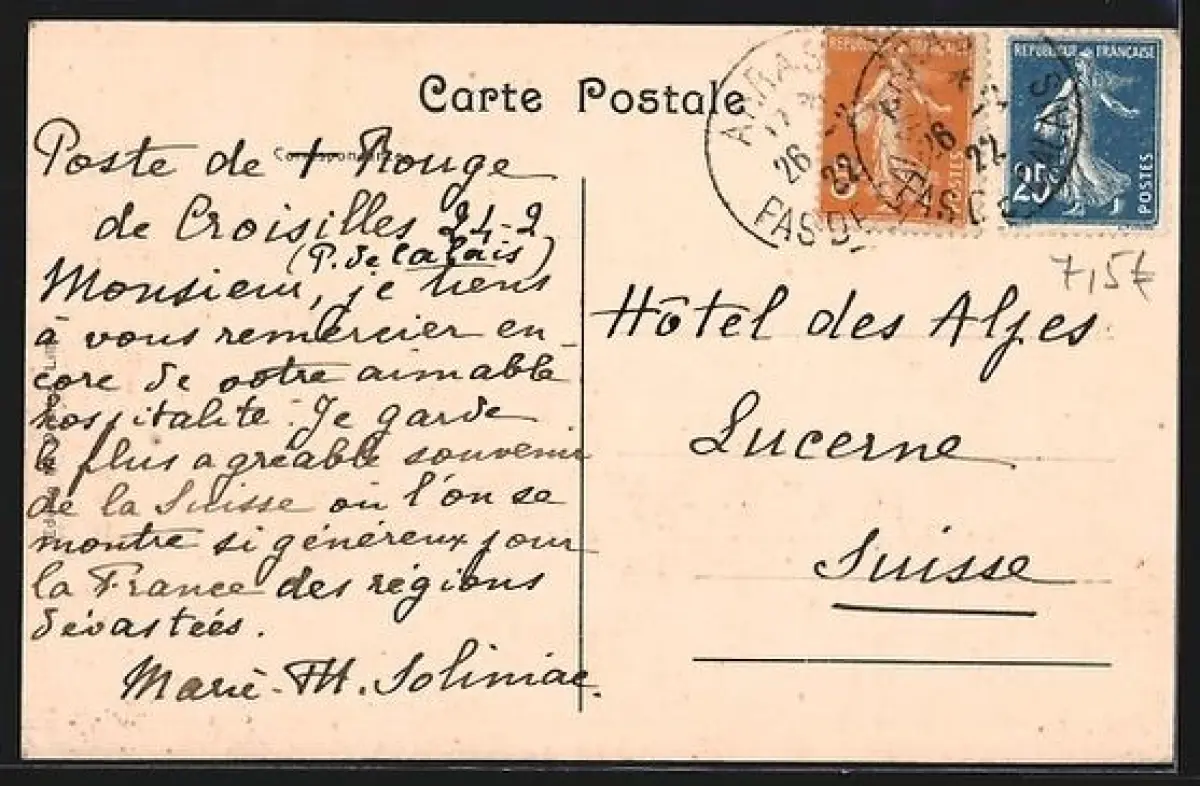 Carte Postale
Poste de + Rouge
de Croisilles 24-2
(P. de Calais)
Monsieur, je tiens
à vous remercier en-
core de votre aimable
hospitalité. Je garde
le plus agréable souvenir
de la Suisse où l'on se
montre si généreux pour
la France des régions
dévastées.
Marie-Th. Soliniac.
REPUBLIQUE FRANÇAISE
POSTES
REPUBLIQUE FRANÇAISE
25c
POSTES
ARRAS
26 -2
22
PAS DE
26 -2
22
PAS DE CALAIS
7,5€
Hôtel des Alpes
Lucerne
Suisse